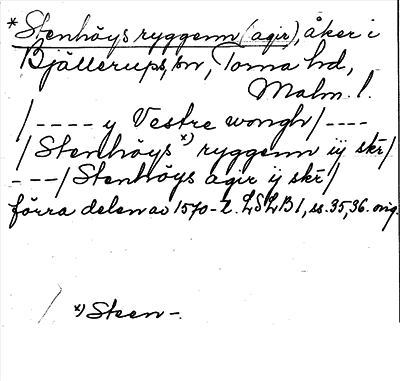 *Stenhöys ryggenn (agir), åker i
Bjällerups sn, Torna hd,
Malm. l.
/---- y Vestre wongh/----
/Stenhöys x) ryggenn iij skr/
---/Stenhöys agir ij skr/
förra delen av 1570-t. LSLB 1, ss. 35, 36. orig.
/ x) Steen-.